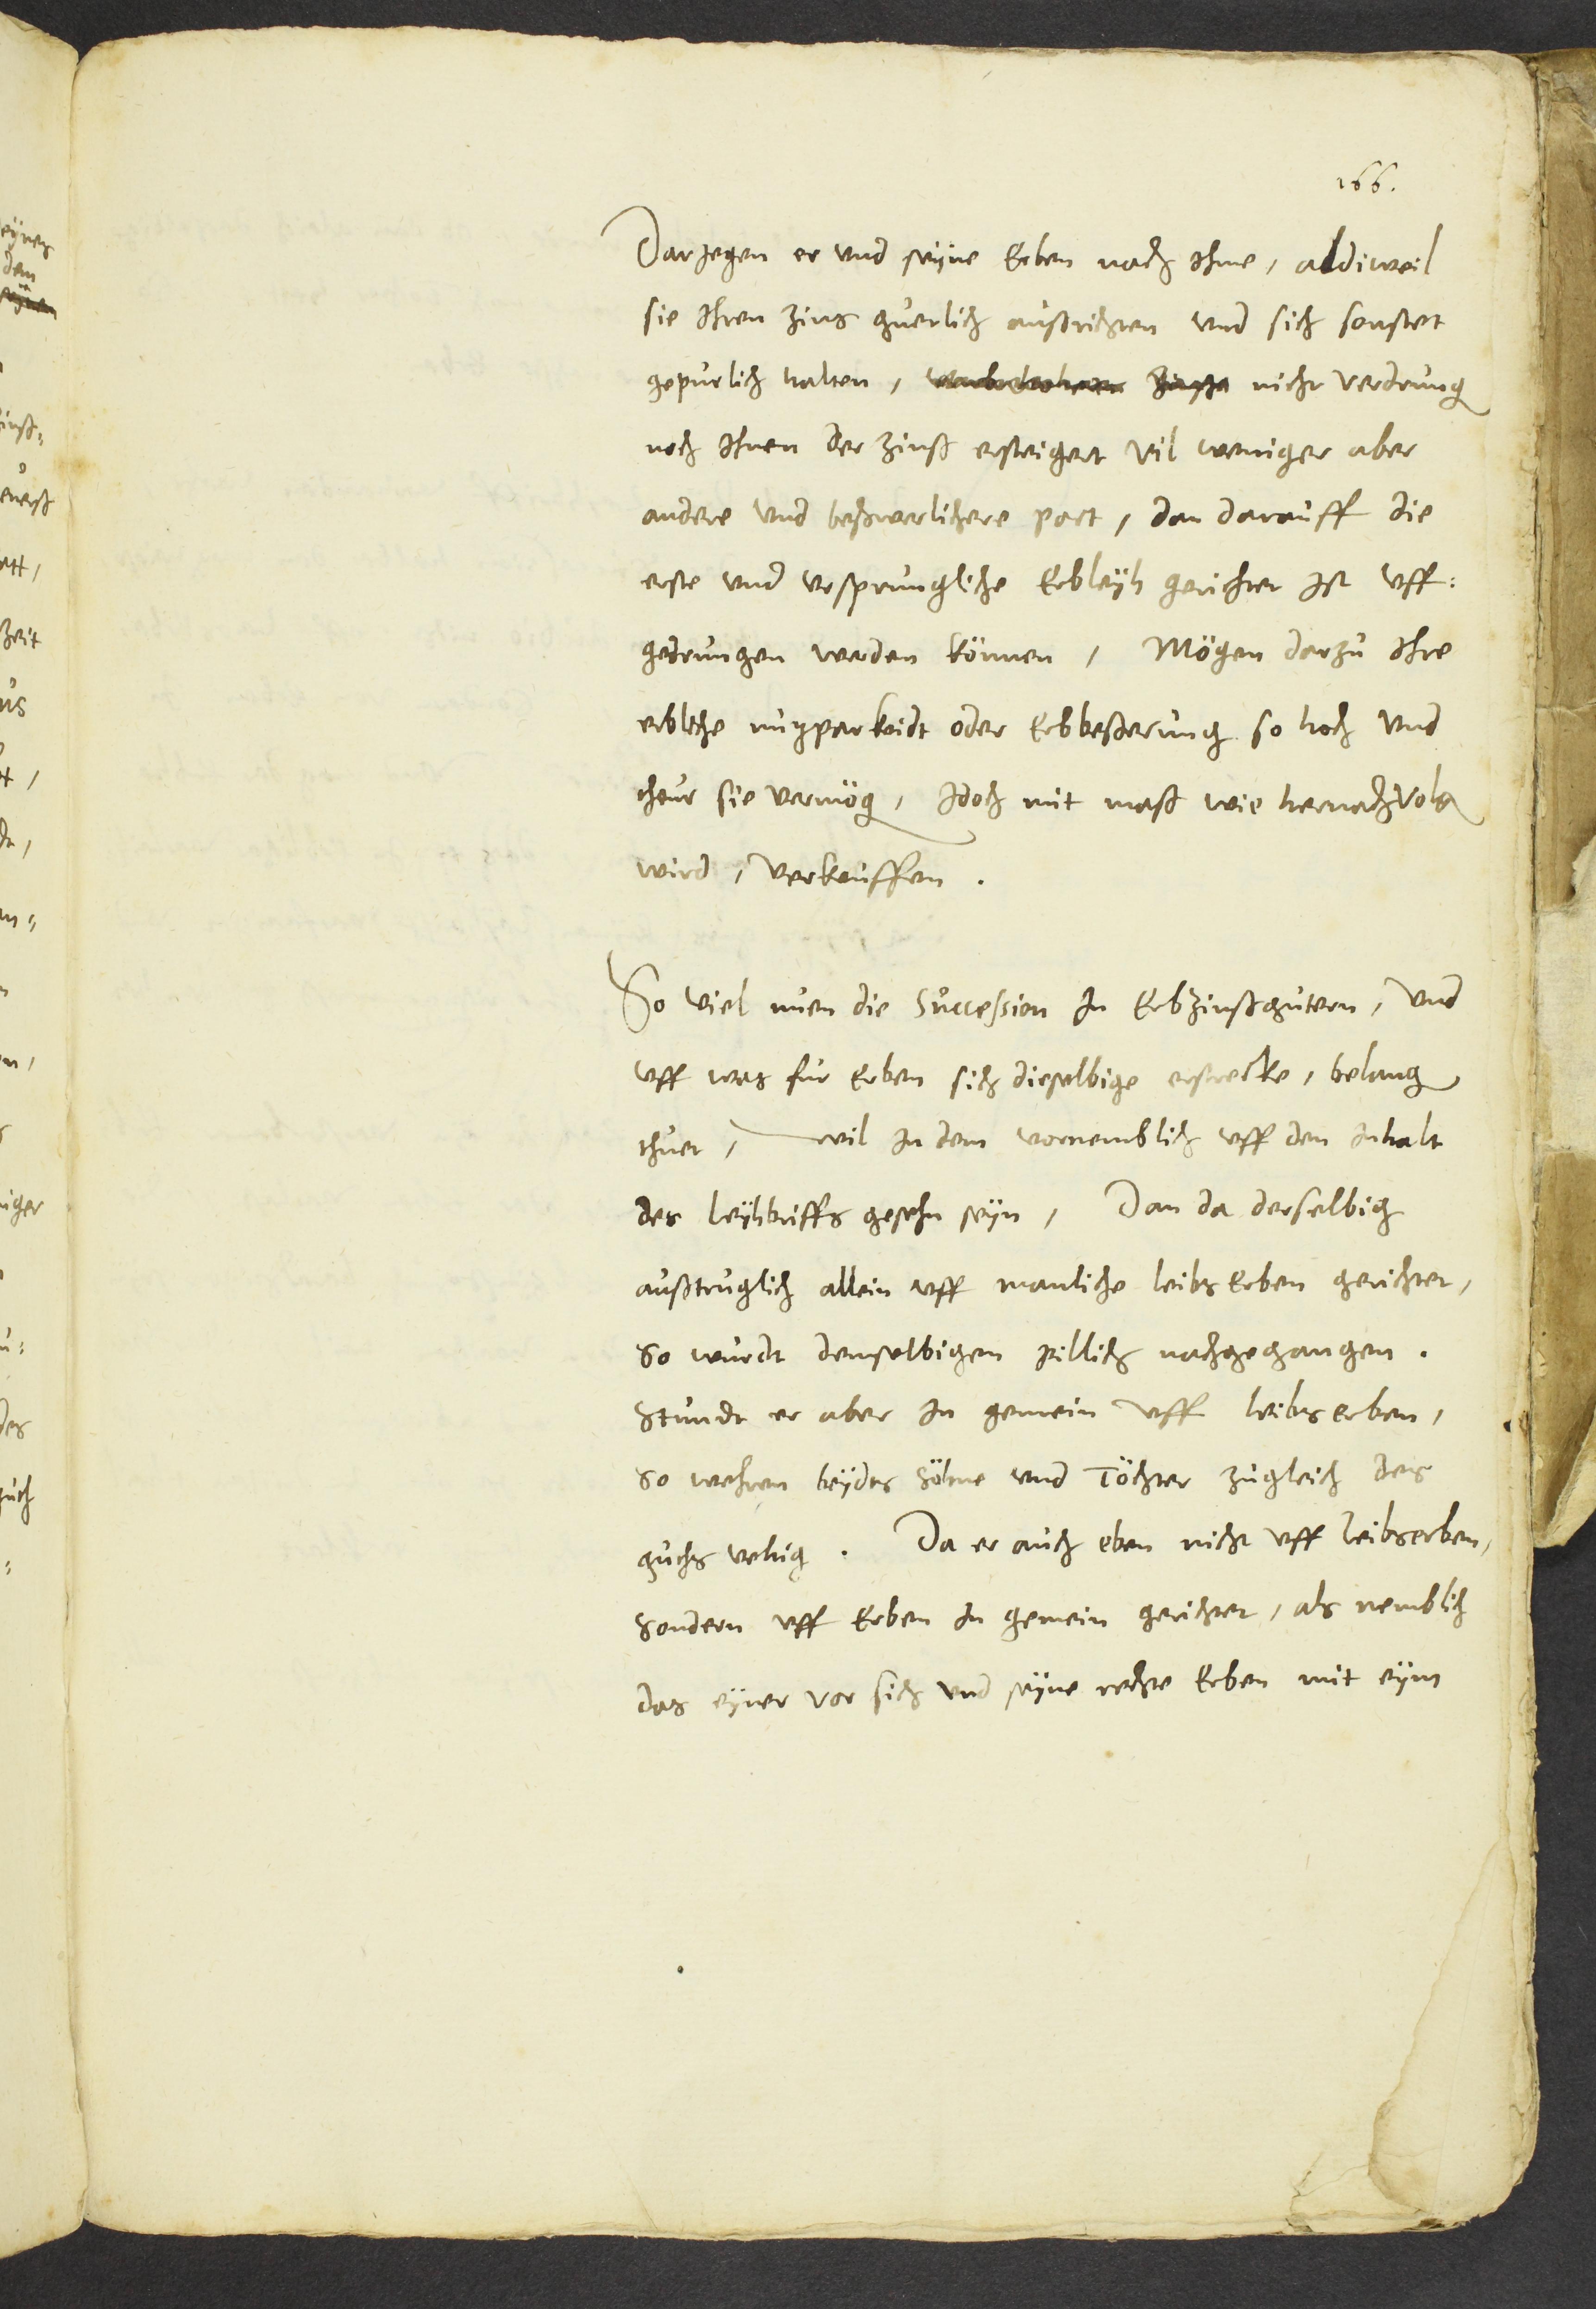 166.
Darjegen er und seyne Erben nach Ihme, aldiweil
sie Ihren Zins guetlich außrichten und sich sonstet
gepurlich halten, nicht verdrung
noch Ihnen der Zinß ersteigert vil weniger aber
andere und beschwerlichere pact, dan darauff die
erste und ursprungliche Erbleyh gerichtet ist uff=
gedrungen werden können, Mögen darzu Ihre
erbliche nuzparkeidt oder Erbbeßerung so hoch und
theur sie vermög, Idoch mit maß wie hernach volg
wird, verkauffen.
So viel nuen die Succession In Erbzinßgutern, und
uff was fur Erben sich dieselbige erstrecke, belang
thuet, wil In dem vornemblich uff den Inhalt
des leyhbriffs gesehn seyn, Dan da derselbig
außtruglich allein uff manliche leibs Erben gerichtet,
so wurdt demselbigen pillich nachgegangen.
Stundt er aber In gemein uff leibs erben,
so wehren beydes Söhne und Töchter zugleich des
guths vehig. Da er auch eben nicht uff leibserben,
sondern uff Erben In gemein gerichtet, als nemblich
das eyner vor sich und seyne rechte Erben mit eym
eynes
dem
Zeit
des